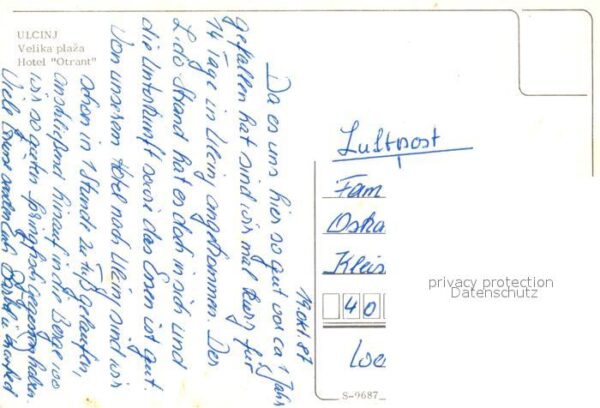 ULCINJ
Velika plaža
Hotel "Otrant"
14. Okt. 87
Da es uns hier so gut vor ca 1 Jahr
gefallen hat sind wir mal kurz für
14 Tage in Ulcinj angekommen. Der
Strand hat es doch in sich und
die Unterkunft sowie das Essen ist gut.
Von unserem Hotel nach Ulcinj sind wir
schon in 1 Stunde zu Fuß gelaufen,
anschließend hinauf in die Berge wo
wir so guten gegessen haben.
Viele Grüße senden Euch
Luftpost
Fam
Oska
Kleis
40
privacy protection
Datenschutz
S-9687